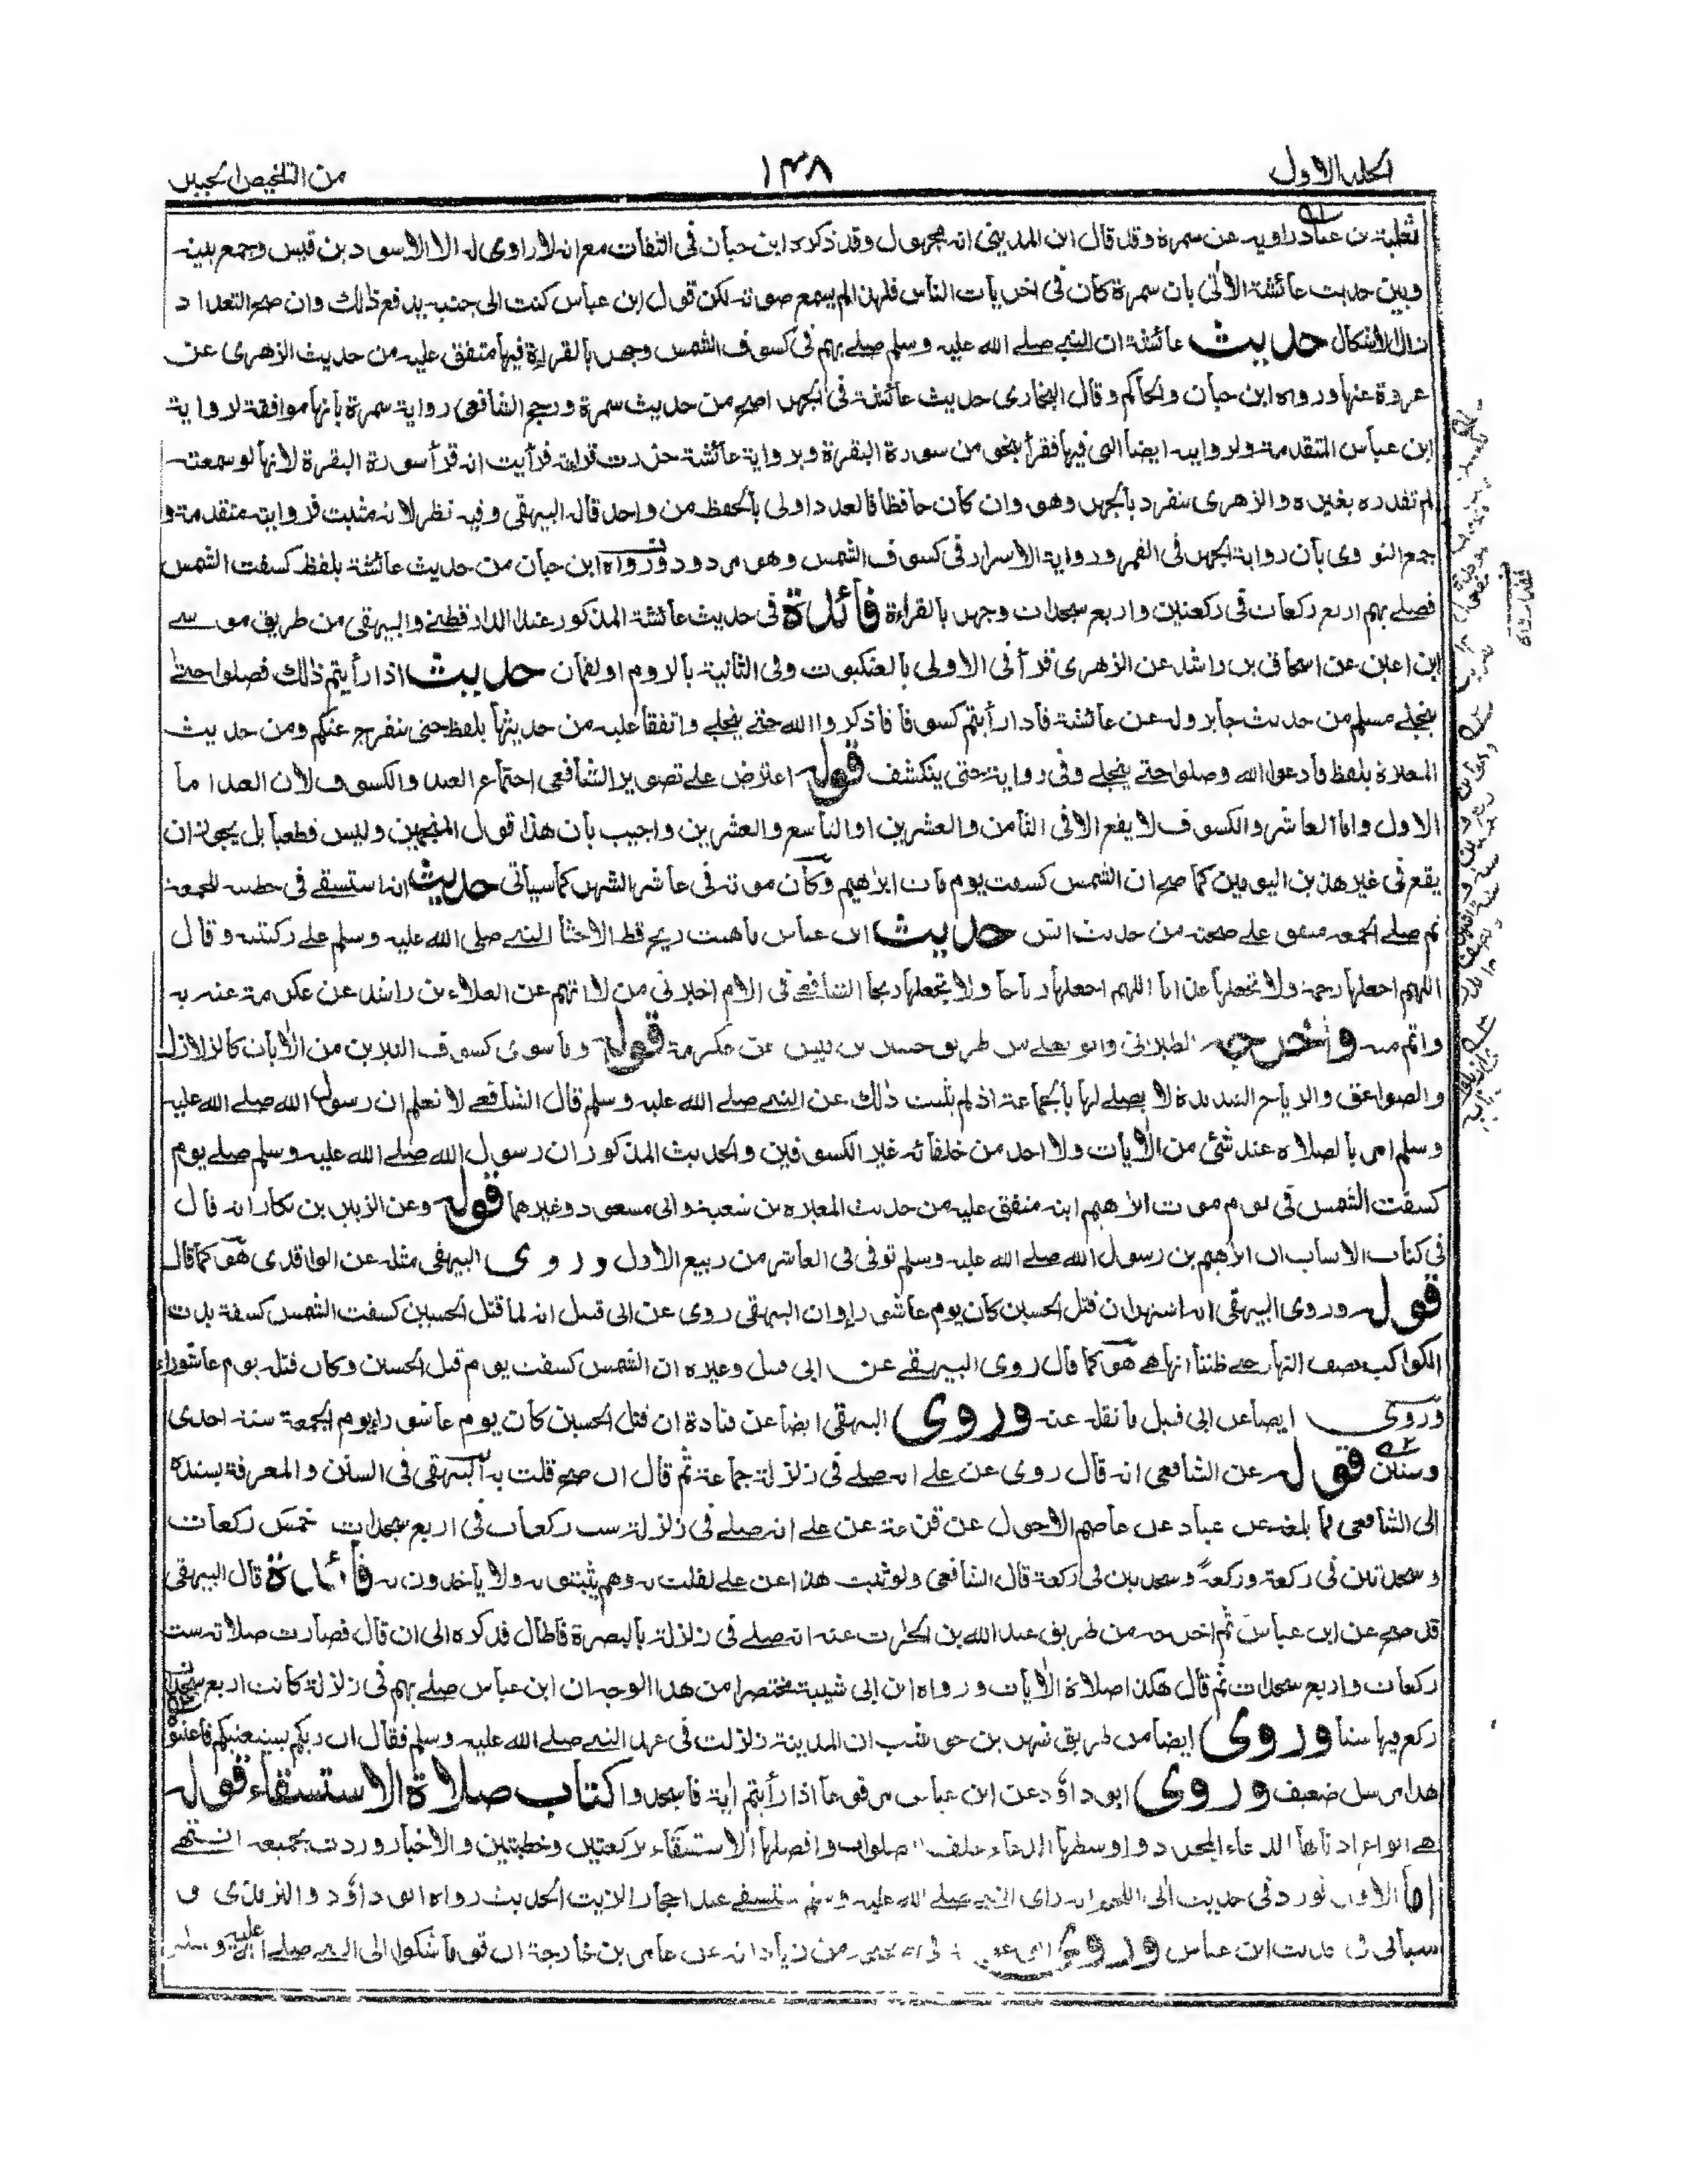 الجلد الاول
١٣٨
من التلخيص الحبير
ثعلبة بن عباد راويه عن سمرة وقد قال ابن المديني انه مجهول وقد ذكره ابن حبان في الثقات مع انه لا راوي له الا الاسود بن قيس وجمع بينه
وبين حديث عائشة الآتي بان سمرة كان في اخريات الناس فلهذا لم يسمع صوته لكن قول ابن عباس كنت الى جنبه يدفع ذلك وان صح التعداد
زال الاشكال حديث عائشة ان النبي صلى الله عليه وسلم صلى بهم في كسوف الشمس وجهر بالقراءة فيها متفق عليه من حديث الزهري عن
عروة عنها ورواه ابن حبان والحاكم وقال البخاري حديث عائشة في الجهر اصح من حديث سمرة ورجح الشافعي رواية سمرة بانها موافقة لرواية
ابن عباس المتقدمة ولروايته ايضا التي فيها فقرأ بنحو من سورة البقرة وبرواية عائشة حزرت قراءته فرأيت انه قرأ سورة البقرة لانها لو سمعته
لم تقدره بغيره والزهري ينفرد بالجهر وهو وان كان حافظا فالعدد اولى بالحفظ من واحد قاله البيهقي وفيه نظر لانه مثبت فروايته متقدمة و
جمع النووي بان رواية الجهر في القمر ورواية الاسرار في كسوف الشمس وهو مردود ورواه ابن حبان من حديث عائشة بلفظ كسفت الشمس
فصلى بهم اربع ركعات في ركعتين واربع سجدات وجهر بالقراءة فائدة في حديث عائشة المذكور عند الدارقطني والبيهقي من طريق موسى
ابن اعين عن اسحاق بن راشد عن الزهري قرأ في الاولى بالعنكبوت وفي الثانية بالروم او لقمان حديث اذا رأيتم ذلك فصلوا حتى
ينجلي مسلم من حديث جابر وله عن عائشة فاذا رأيتم كسوفا فاذكروا الله حتى ينجلي واتفقا عليه من حديثها بلفظ حتى ينفرج عنكم ومن حديث
المغيرة بلفظ فادعوا الله وصلوا حتى ينجلي وفي رواية حتى ينكشف قوله اعترض على تصوير الشافعي اجتماع العيد والكسوف لان العيد اما
الاول واما العاشر والكسوف لا يقع الا في الثامن والعشرين او التاسع والعشرين واجيب بان هذا قول المنجمين وليس قطعيا بل يجوز ان
يقع في غير هذين اليومين كما صح ان الشمس كسفت يوم مات ابراهيم وكان موته في عاشر الشهر كما سيأتي حديث انه استسقى في خطبة الجمعة
ثم صلى الجمعة متفق على صحته من حديث انس حديث ابن عباس ما هبت ريح قط الا جثا النبي صلى الله عليه وسلم على ركبتيه وقال
اللهم اجعلها رحمة ولا تجعلها عذابا اللهم اجعلها رياحا ولا تجعلها ريحا الشافعي في الام اخبرني من لا اتهم عن العلاء بن راشد عن عكرمة عنه به
واتم منه واخرجه الطبراني وابو يعلى من طريق حسين بن قيس عن عكرمة قوله وما سوى كسوف النيرين من الآيات كالزلازل
والصواعق والرياح الشديدة لا يصلى لها بالجماعة اذ لم يثبت ذلك عن النبي صلى الله عليه وسلم قال الشافعي لا نعلم ان رسول الله صلى الله عليه
وسلم امر بالصلاة عند شئ من الآيات ولا احد من خلفائه غير الكسوفين والحديث المذكور ان رسول الله صلى الله عليه وسلم صلى يوم
كسفت الشمس في يوم موت ابراهيم ابنه متفق عليه من حديث المغيرة بن شعبة وابي مسعود وغيرهما قوله وعن الزبير بن بكار انه قال
في كتاب الانساب ان ابراهيم بن رسول الله صلى الله عليه وسلم توفي في العاشر من ربيع الاول وروى البيهقي مثله عن الواقدي هو كما قال
قوله وروى البيهقي انه اشتهر ان قتل الحسين كان يوم عاشوراء وان البيهقي روى عن ابي قبيل انه لما قتل الحسين كسفت الشمس كسفة بدت
الكواكب نصف النهار حتى ظننا انها هي هو كما قال روى البيهقي عن ابي قبيل وغيره ان الشمس كسفت يوم قتل الحسين وكان قتله يوم عاشوراء
وروى ايضا عن ابي قبيل ما نقله عنه وروى البيهقي ايضا عن قتادة ان قتل الحسين كان يوم عاشوراء يوم الجمعة سنة احدى
وستين قوله عن الشافعي انه قال روى عن علي انه صلى في زلزلة جماعة ثم قال ان صح قلت به البيهقي في السنن والمعرفة بسنده
الى الشافعي فيما بلغه عن عباد عن عاصم الاحول عن قزعة عن علي انه صلى في زلزلة ست ركعات في اربع سجدات خمس ركعات
وسجدتين في ركعة وركعة وسجدتين في ركعة قال الشافعي ولو ثبت هذا عن علي لقلت به وهم يثبتونه ولا يأخذون به فائدة قال البيهقي
قد صح عن ابن عباس ثم اخرجه من طريق عبد الله بن الحارث عنه انه صلى في زلزلة بالبصرة فاطال فذكره الى ان قال فصارت صلاته ست
ركعات واربع سجدات ثم قال هكذا صلاة الآيات ورواه ابن ابي شيبة مختصرا من هذا الوجه ان ابن عباس صلى بهم في زلزلة كانت اربع سجدات
ركع فيها ستا وروى ايضا من طريق شهر بن حوشب ان المدينة زلزلت في عهد النبي صلى الله عليه وسلم فقال ان ربكم يستعتبكم فاعتبوه
هذا مرسل ضعيف وروى ابو داؤد عن ابن عباس مرفوعا اذا رأيتم اية فاسجدوا كتاب صلاة الاستسقاء قوله
هي انواع ادناها الدعاء المجرد واوسطها الدعاء خلف الصلوات وافضلها الاستسقاء بركعتين وخطبتين والاخبار وردت بجميعه انتهى
اما الاول فورد في حديث ابي اللحم انه رأى النبي صلى الله عليه وسلم يستسقي عند احجار الزيت الحديث رواه ابو داؤد والترمذي و
سيأتي في حديث ابن عباس وروى من زياداته عن عامر بن خارجة ان قوما شكوا الى النبي صلى الله عليه وسلم